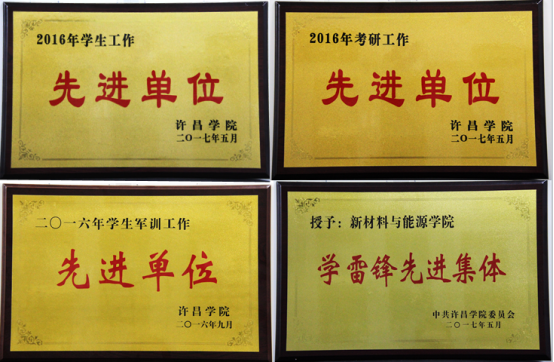 2016年学生工作
先进单位
许昌学院
二〇一七年五月
2016年考研工作
先进单位
许昌学院
二〇一七年五月
二〇一六年学生军训工作
先进单位
许昌学院
二〇一六年九月
授予：新材料与能源学院
学雷锋先进集体
中共许昌学院委员会
二〇一七年五月